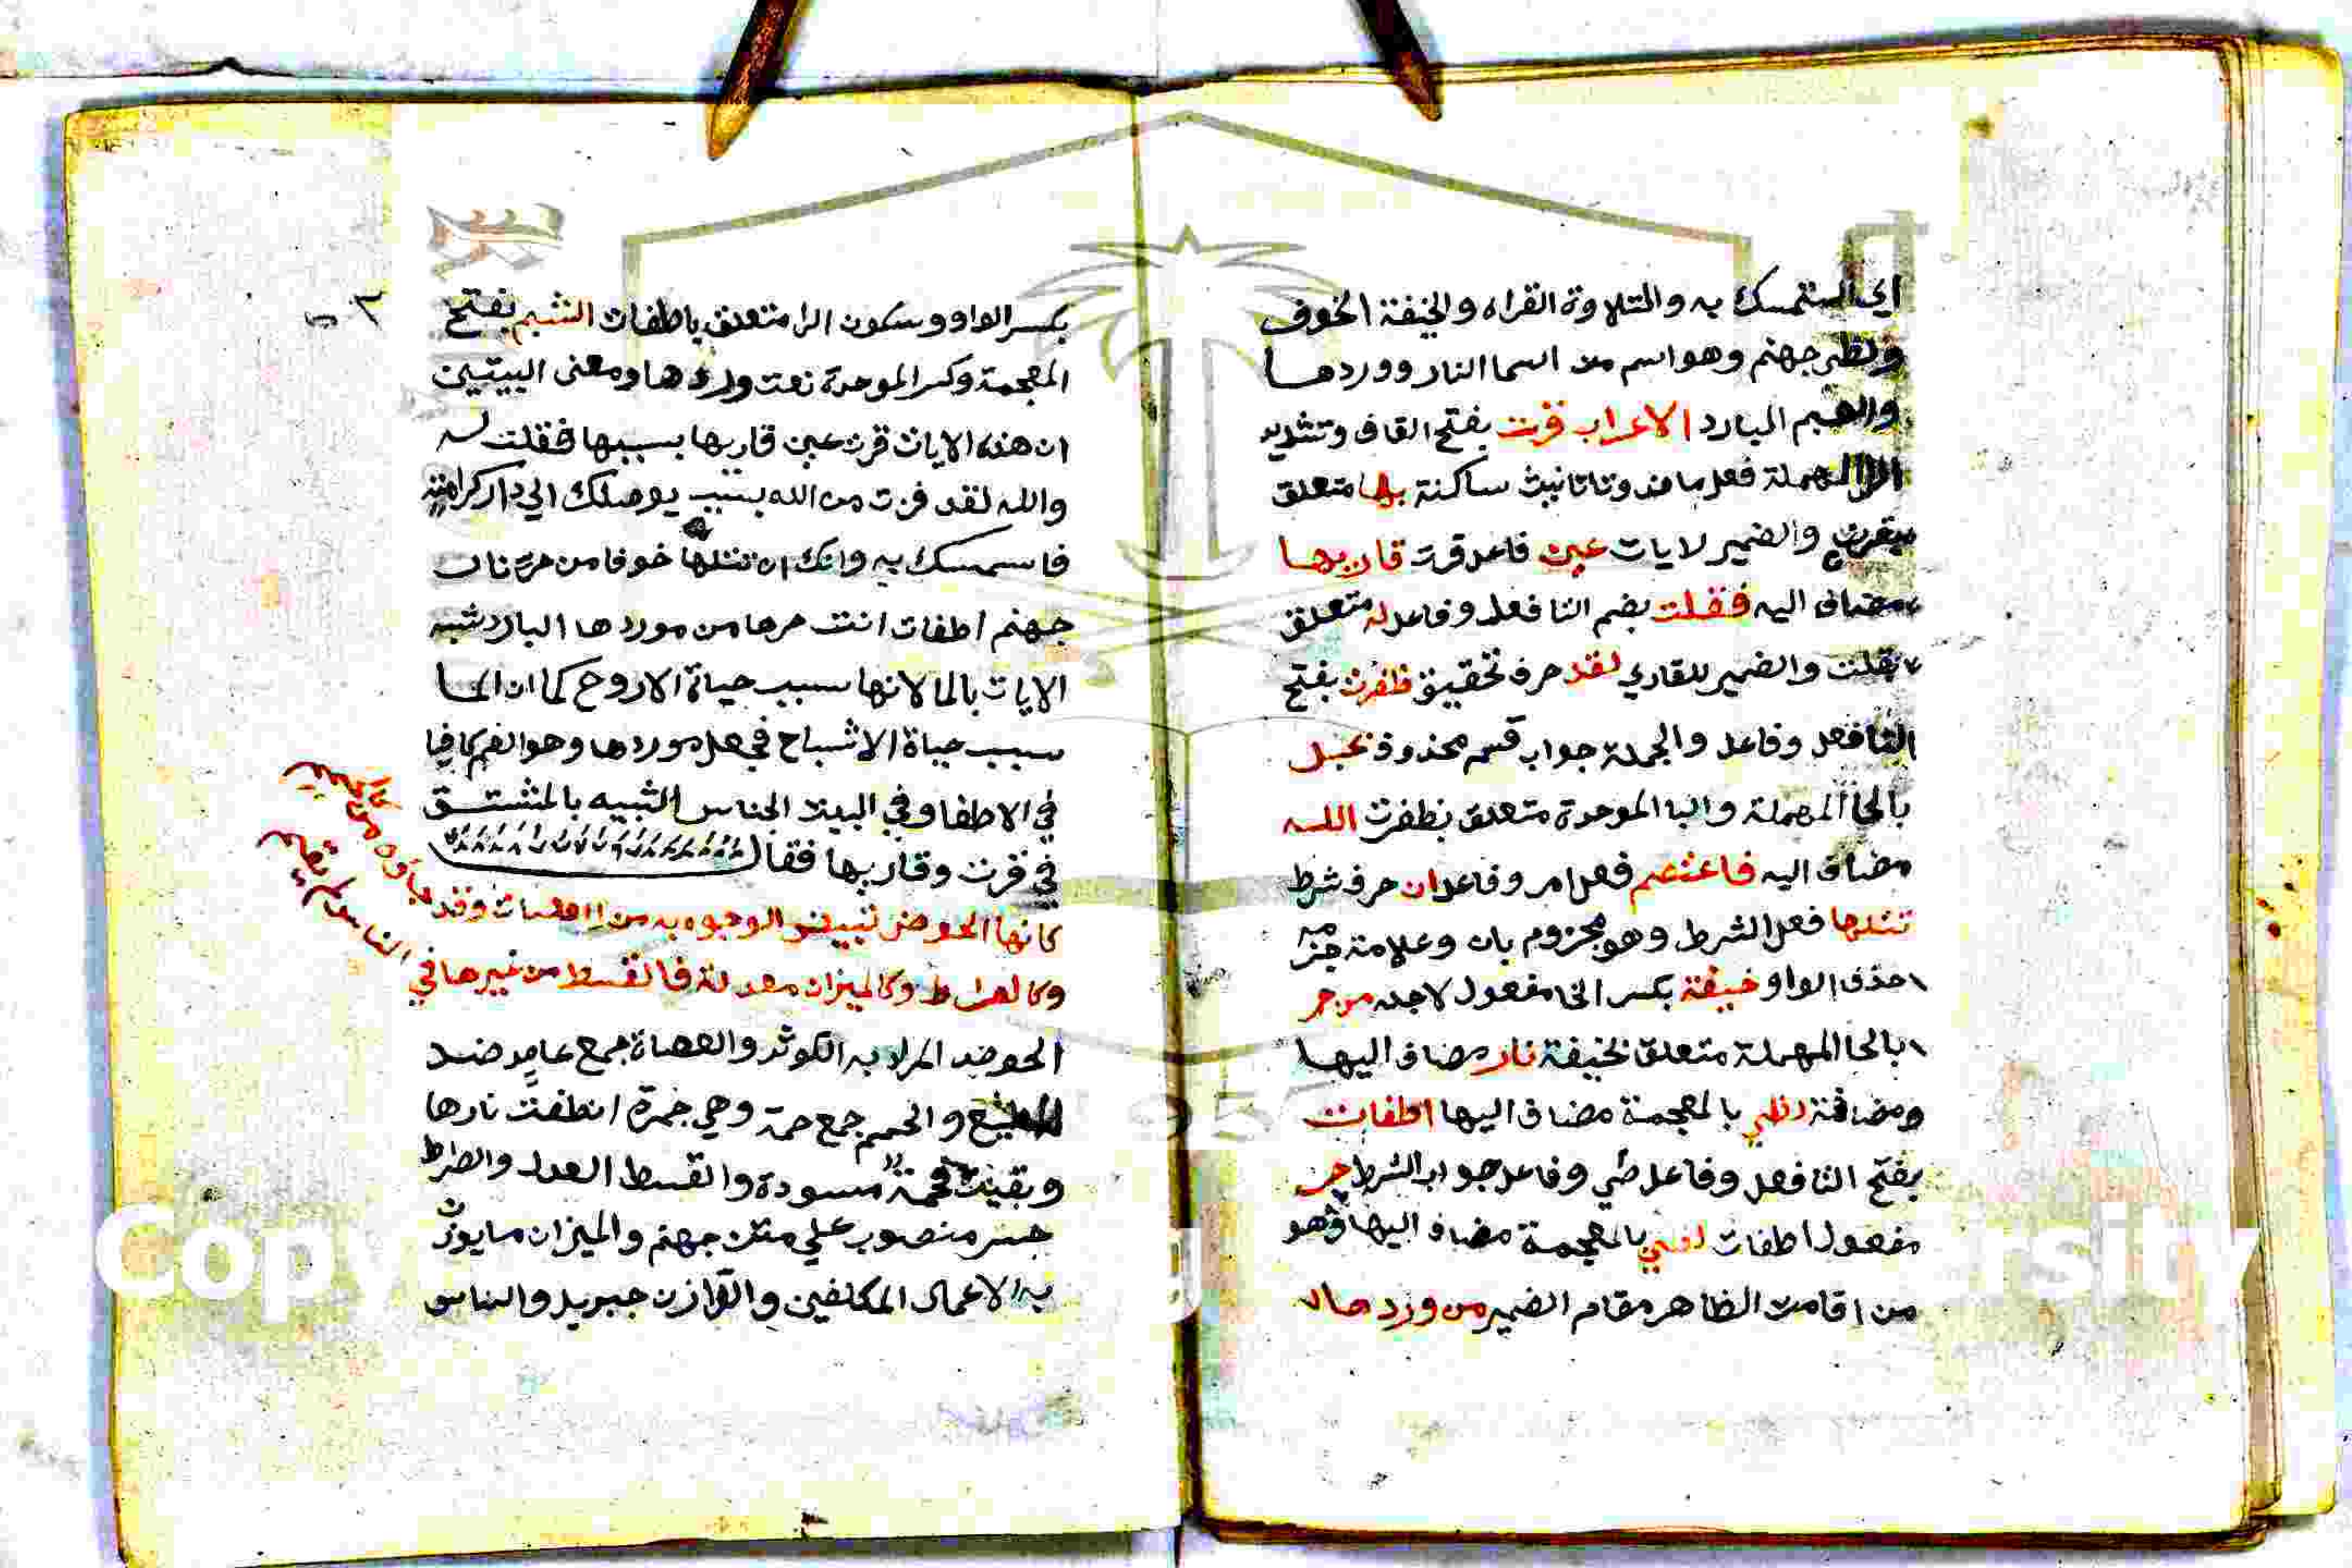 اي استمسك به والتلاوة القراه والخيفة الخوف
ولظي جهنم وهو اسم من اسما النار ووردها
والشبم البارد الاعراب قرت بفتح القاف وتشديد
الرا المهملة فعل ماض وتا تانيث ساكنة بها متعلق
بقرت والضمير لايات عين فاعل قرت قاريها
مضاف اليه فقلت بضم التا فعل وفاعل له متعلق
بقلت والضمير للقاري لقد حرف تحقيق ظفرت بفتح
التا فعل وفاعل والجملة جواب قسم محذوف بحبل
بالحا المهملة والبا الموحدة متعلق بظفرت الله
مضاف اليه فاعتصم فعل امر وفاعل ان حرف شرط
تتلها فعل الشرط وهو مجزوم بان وعلامة جزمه
حذف الواو خيفة بكسر الخا مفعول لاجله من حر
بالحا المهملة متعلق بخيفة نار مضاف اليها
ومضافة لظي بالمعجمة مضاف اليها اطفات
بفتح التا فعل وفاعل وفاعل جواب الشرط حر
مفعول اطفات لظي بالمعجمة مضاف اليها وهو
من اقامت الظاهر مقام الضمير من وردها
بكسر الواو وسكون الرا متعلق باطفات الشبم بفتح
المعجمة وكسر الموحدة نعت وردها ومعنى البيتين
ان هذه الايات قرت عين قاريها بسببها فقلت له
والله لقد فزت من الله بسبب يوصلك الي دار كرامته
فاستمسك به وانك ان تتلها خوفا من حر نار
جهنم اطفات انت حرها من موردها البارد شبه
الايات بالما لانها سبب حياة الاروح كما ان الما
سبب حياة الاشباح فجعل موردها وهو الفم كافيا
في الاطفا وفي البيت الجناس الشبيه بالمشتق
في قرت وقاريها فقال
كانها الحوض تبيض الوجوه به من العصات وقد جاؤه كالحمم
وكالصراط وكالميزان معدلة فالقسط من غيرها في الناس لم يقم
الحوض المراد به الكوثر والعصاة جمع عاص ضد
المطيع والحمم جمع حمة وهي جمرة انطفت نارها
وبقيت فحمة مسودة والقسط العدل والصراط
جسر منصوب علي متن جهنم والميزان ما يوزن
به الاعمال المكلفين والوازن جبريل والناس